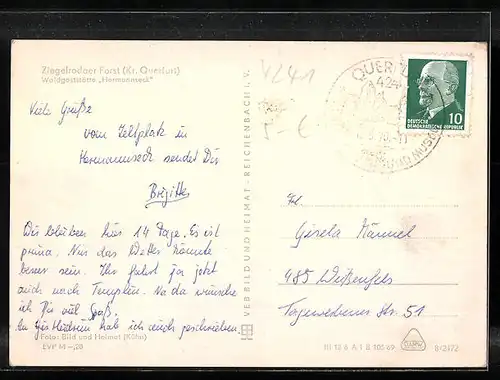 Ziegelrodaer Forst (Kr. Querfurt)
Waldgaststätte „Hermannseck"
Viele Grüße
vom Zeltplatz in
Hermannseck sendet Dir
Brigitte
Wir bleiben hier 14 Tage. Es ist
prima. Nur das Wetter könnte
besser sein. Ihr fahrt ja jetzt
auch nach Templin. Na da wünsche
ich Dir viel Spaß.
An hab ich auch geschrieben.
Foto: Bild und Heimat (Kühn)
EVP M —,20
VEB BILD UND HEIMAT · REICHENBACH i. V.
V241
QUERFURT
424
10
DEUTSCHE
DEMOKRATISCHE REPUBLIK
Frl.
Gisela
485 Weißenfels
Tagewerbener Str. 51
III 18 6 A 1 B 105 69
8/2172